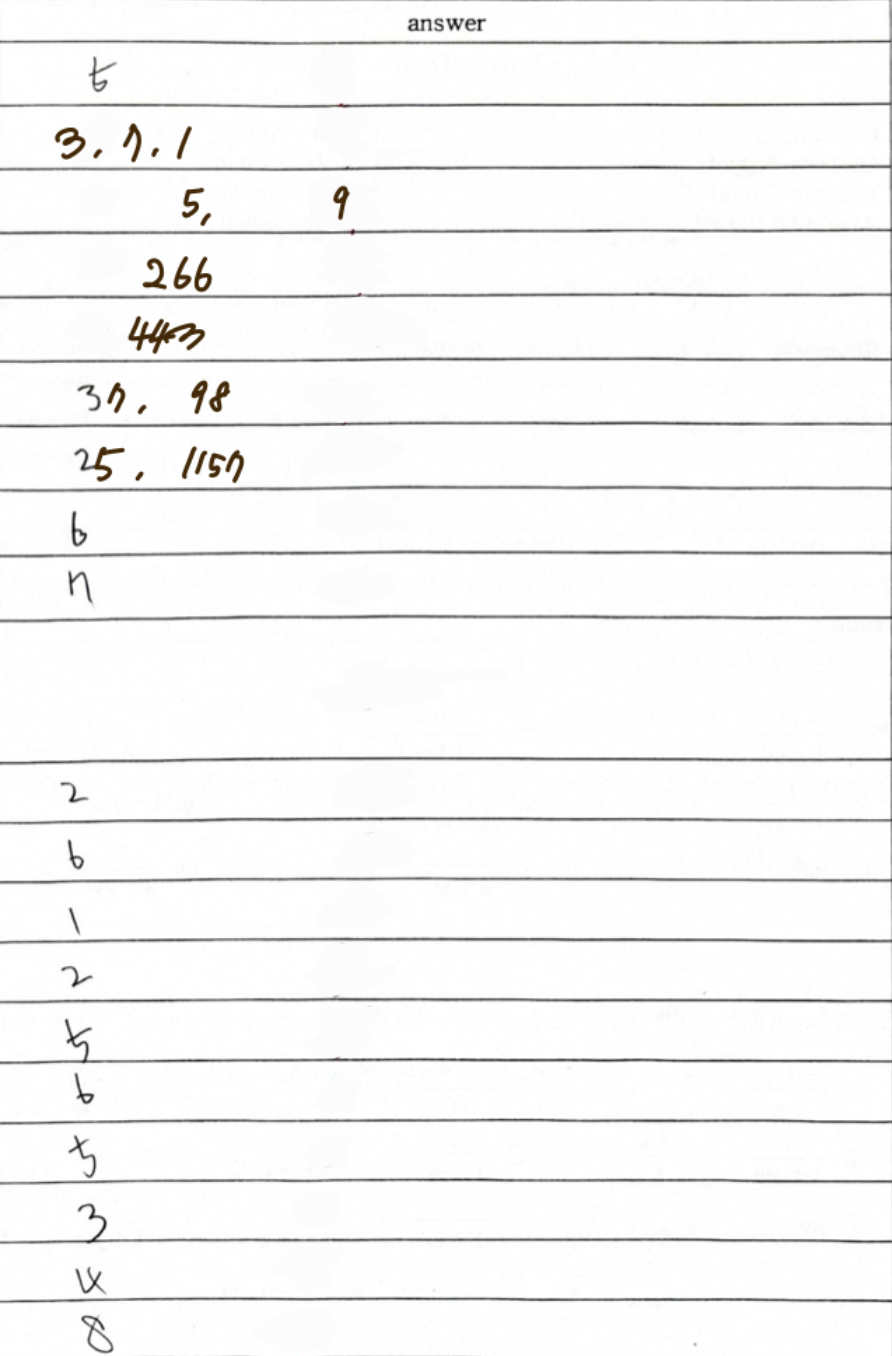 answer
5
3. 7. 1
5, 9
266
443
37. 98
25. 1157
6
7
2
6
1
2
5
6
5
3
4
8